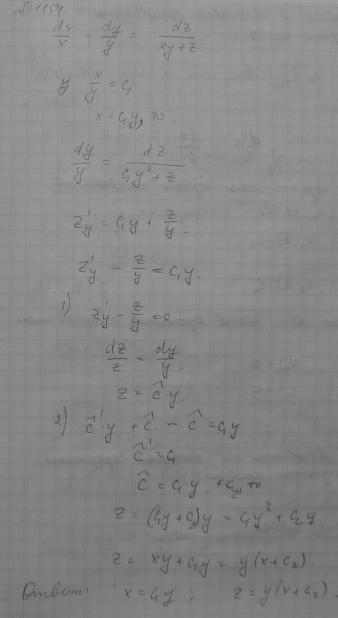 №1154
dx/x = dy/y = dz/(xy+z)
y x/y = c₁
x = c₁y, то
dy/y = dz/(c₁y²+z)
z'y = c₁y + z/y
z'y − z/y = c₁y.
1) z'y − z/y = 0
dz/z = dy/y
z = ĉ·y.
2) ĉ'·y + ĉ − ĉ = c₁y
ĉ' = c₁
ĉ = c₁y + c₂, то
z = (c₁y + c₂)y = c₁y² + c₂y
z = xy + c₂y = y(x + c₂).
Ответ: x = c₁y ; z = y(x + c₂).